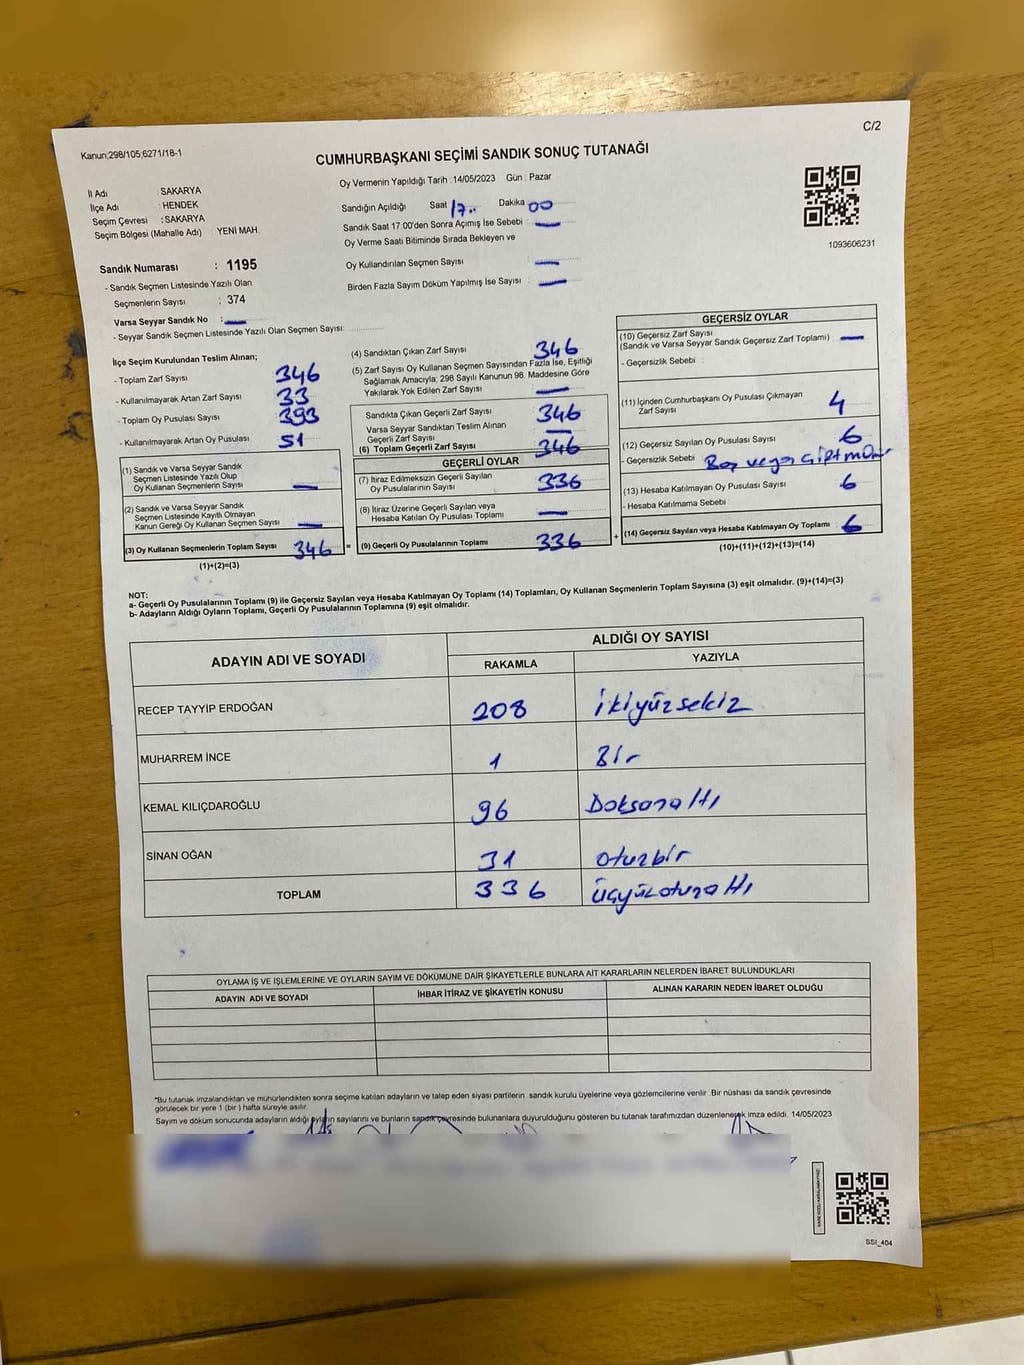 C/2
Kanun;298/105;6271/18-1
CUMHURBAŞKANI SEÇİMİ SANDIK SONUÇ TUTANAĞI
İl Adı : SAKARYA
İlçe Adı : HENDEK
Seçim Çevresi : SAKARYA
Seçim Bölgesi (Mahalle Adı) : YENİ MAH.
Sandık Numarası : 1195
- Sandık Seçmen Listesinde Yazılı Olan
Seçmenlerin Sayısı : 374
Varsa Seyyar Sandık No : —
- Seyyar Sandık Seçmen Listesinde Yazılı Olan Seçmen Sayısı:
Oy Vermenin Yapıldığı Tarih : 14/05/2023 Gün : Pazar
Sandığın Açıldığı Saat 17.. Dakika 00
Sandık Saat 17:00'den Sonra Açımış İse Sebebi : —
Oy Verme Saati Bitiminde Sırada Bekleyen ve
Oy Kullandırılan Seçmen Sayısı —
Birden Fazla Sayım Döküm Yapılmış İse Sayısı : —
1093606231
İlçe Seçim Kurulundan Teslim Alınan;
- Toplam Zarf Sayısı 346
- Kullanılmayarak Artan Zarf Sayısı 33
- Toplam Oy Pusulası Sayısı 393
- Kullanılmayarak Artan Oy Pusulası 51
(1) Sandık ve Varsa Seyyar Sandık
Seçmen Listesinde Yazılı Olup
Oy Kullanan Seçmenlerin Sayısı —
(2) Sandık ve Varsa Seyyar Sandık
Seçmen Listesinde Kayıtlı Olmayan
Kanun Gereği Oy Kullanan Seçmen Sayısı —
(3) Oy Kullanan Seçmenlerin Toplam Sayısı 346 =
(1)+(2)=(3)
(4) Sandıktan Çıkan Zarf Sayısı 346
(5) Zarf Sayısı Oy Kullanan Seçmen Sayısından Fazla İse, Eşitliği
Sağlamak Amacıyla; 298 Sayılı Kanunun 98. Maddesine Göre
Yakılarak Yok Edilen Zarf Sayısı —
Sandıkta Çıkan Geçerli Zarf Sayısı 346
Varsa Seyyar Sandıktan Teslim Alınan
Geçerli Zarf Sayısı —
(6) Toplam Geçerli Zarf Sayısı 346
GEÇERLİ OYLAR
(7) İtiraz Edilmeksizin Geçerli Sayılan
Oy Pusulalarının Sayısı 336
(8) İtiraz Üzerine Geçerli Sayılan veya
Hesaba Katılan Oy Pusulası Toplamı —
(9) Geçerli Oy Pusulalarının Toplamı 336 +
GEÇERSİZ OYLAR
(10) Geçersiz Zarf Sayısı
(Sandık ve Varsa Seyyar Sandık Geçersiz Zarf Toplamı) : —
- Geçersizlik Sebebi :
(11) İçinden Cumhurbaşkanı Oy Pusulası Çıkmayan
Zarf Sayısı 4
(12) Geçersiz Sayılan Oy Pusulası Sayısı 6
- Geçersizlik Sebebi Boş veya
(13) Hesaba Katılmayan Oy Pusulası Sayısı 6
- Hesaba Katılmama Sebebi :
(14) Geçersiz Sayılan veya Hesaba Katılmayan Oy Toplamı 6
(10)+(11)+(12)+(13)=(14)
NOT:
a- Geçerli Oy Pusulalarının Toplamı (9) ile Geçersiz Sayılan veya Hesaba Katılmayan Oy Toplamı (14) Toplamları, Oy Kullanan Seçmenlerin Toplam Sayısına (3) eşit olmalıdır. (9)+(14)=(3)
b- Adayların Aldığı Oyların Toplamı, Geçerli Oy Pusulalarının Toplamına (9) eşit olmalıdır.
ADAYIN ADI VE SOYADI
ALDIĞI OY SAYISI
RAKAMLA YAZIYLA
RECEP TAYYİP ERDOĞAN 208 ikiyüzsekiz
MUHARREM İNCE 1 Bir
KEMAL KILIÇDAROĞLU 96 Doksanaltı
SİNAN OĞAN 31 otuzbir
TOPLAM 336 Üçyüzotuzaltı
OYLAMA İŞ VE İŞLEMLERİNE VE OYLARIN SAYIM VE DÖKÜMÜNE DAİR ŞİKAYETLERLE BUNLARA AİT KARARLARIN NELERDEN İBARET BULUNDUKLARI
ADAYIN ADI VE SOYADI İHBAR İTİRAZ VE ŞİKAYETİN KONUSU ALINAN KARARIN NEDEN İBARET OLDUĞU
*Bu tutanak imzalandıktan ve mühürlendikten sonra seçime katılan adayların ve talep eden siyasi partilerin sandık kurulu üyelerine veya gözlemcilerine verilir. Bir nüshası da sandık çevresinde
görülecek bir yere 1 (bir) hafta süreyle asılır.
Sayım ve döküm sonucunda adayların aldığı oyların sayılarını ve bunların sandık çevresinde bulunanlara duyurulduğunu gösteren bu tutanak tarafımızdan düzenlenerek imza edildi. 14/05/2023
SSI_404